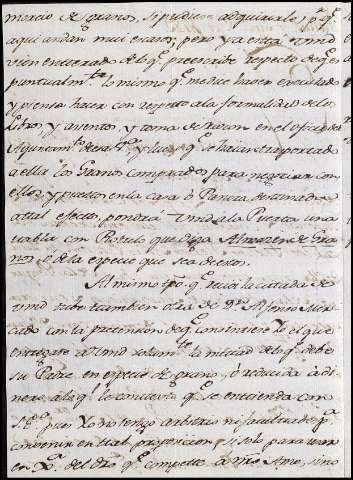 mercio de granos, si pudiera adquirirle; p.r q.e
aqui andan mui escasos; pero ya está Vmd
vien enterado de lo q.e prescribe respecto de q.e es
puntualm.te lo mismo q.e me dice haver executado
y piensa hacer con respecto a la formalidad de los
Libros, y asientos, y toma de razon en el oficio de
Ayuntam.to de esa y luego q.e se haian trasportado
a ella los Granos comprados para negociar con
ellos y puestos en la casa ó Panera destinada
a tal efecto, pondrá Vmd a la Puerta una
tabla con Rotulo que diga Almazen de Gra
nos, ó de la especie que sea de ellos.
Al mismo tpo q.e recivi la citada de
Vmd recibi tambien otra de D.n Alfonso Mer
cado con la pretension de q.e consintiere Yo el que
entregase a Vmd solam.te la mitad de lo q.e debe
su Padre en especie de grano, ó reducida á di
nero a lo q.e le conteste q.e se entienda con
pues Yo no tengo arbitrio ni facultades p.a
combenir en tal proposicion, y si solo para usar
en del dro q.e compete a mi Amo, sino